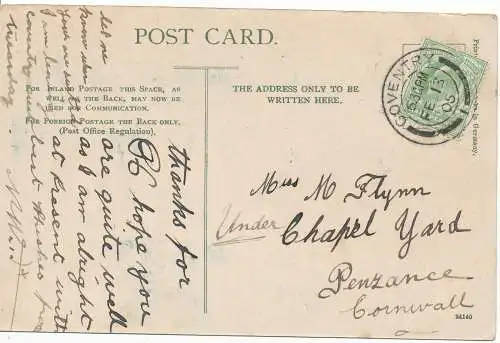 POST CARD.
FOR INLAND POSTAGE THIS SPACE, AS
WELL AS THE BACK, MAY NOW BE
USED FOR COMMUNICATION.
FOR FOREIGN POSTAGE THE BACK ONLY.
(Post Office Regulation).
THE ADDRESS ONLY TO BE
WRITTEN HERE.
COVENTRY
FE 13
05
Miss M Flynn
Under Chapel Yard
Penzance
Cornwall
24140
in Germany.
thanks for
I hope you
are quite well
as I am alright
at present with
best wishes from
let me
know when
I am
Tuesday